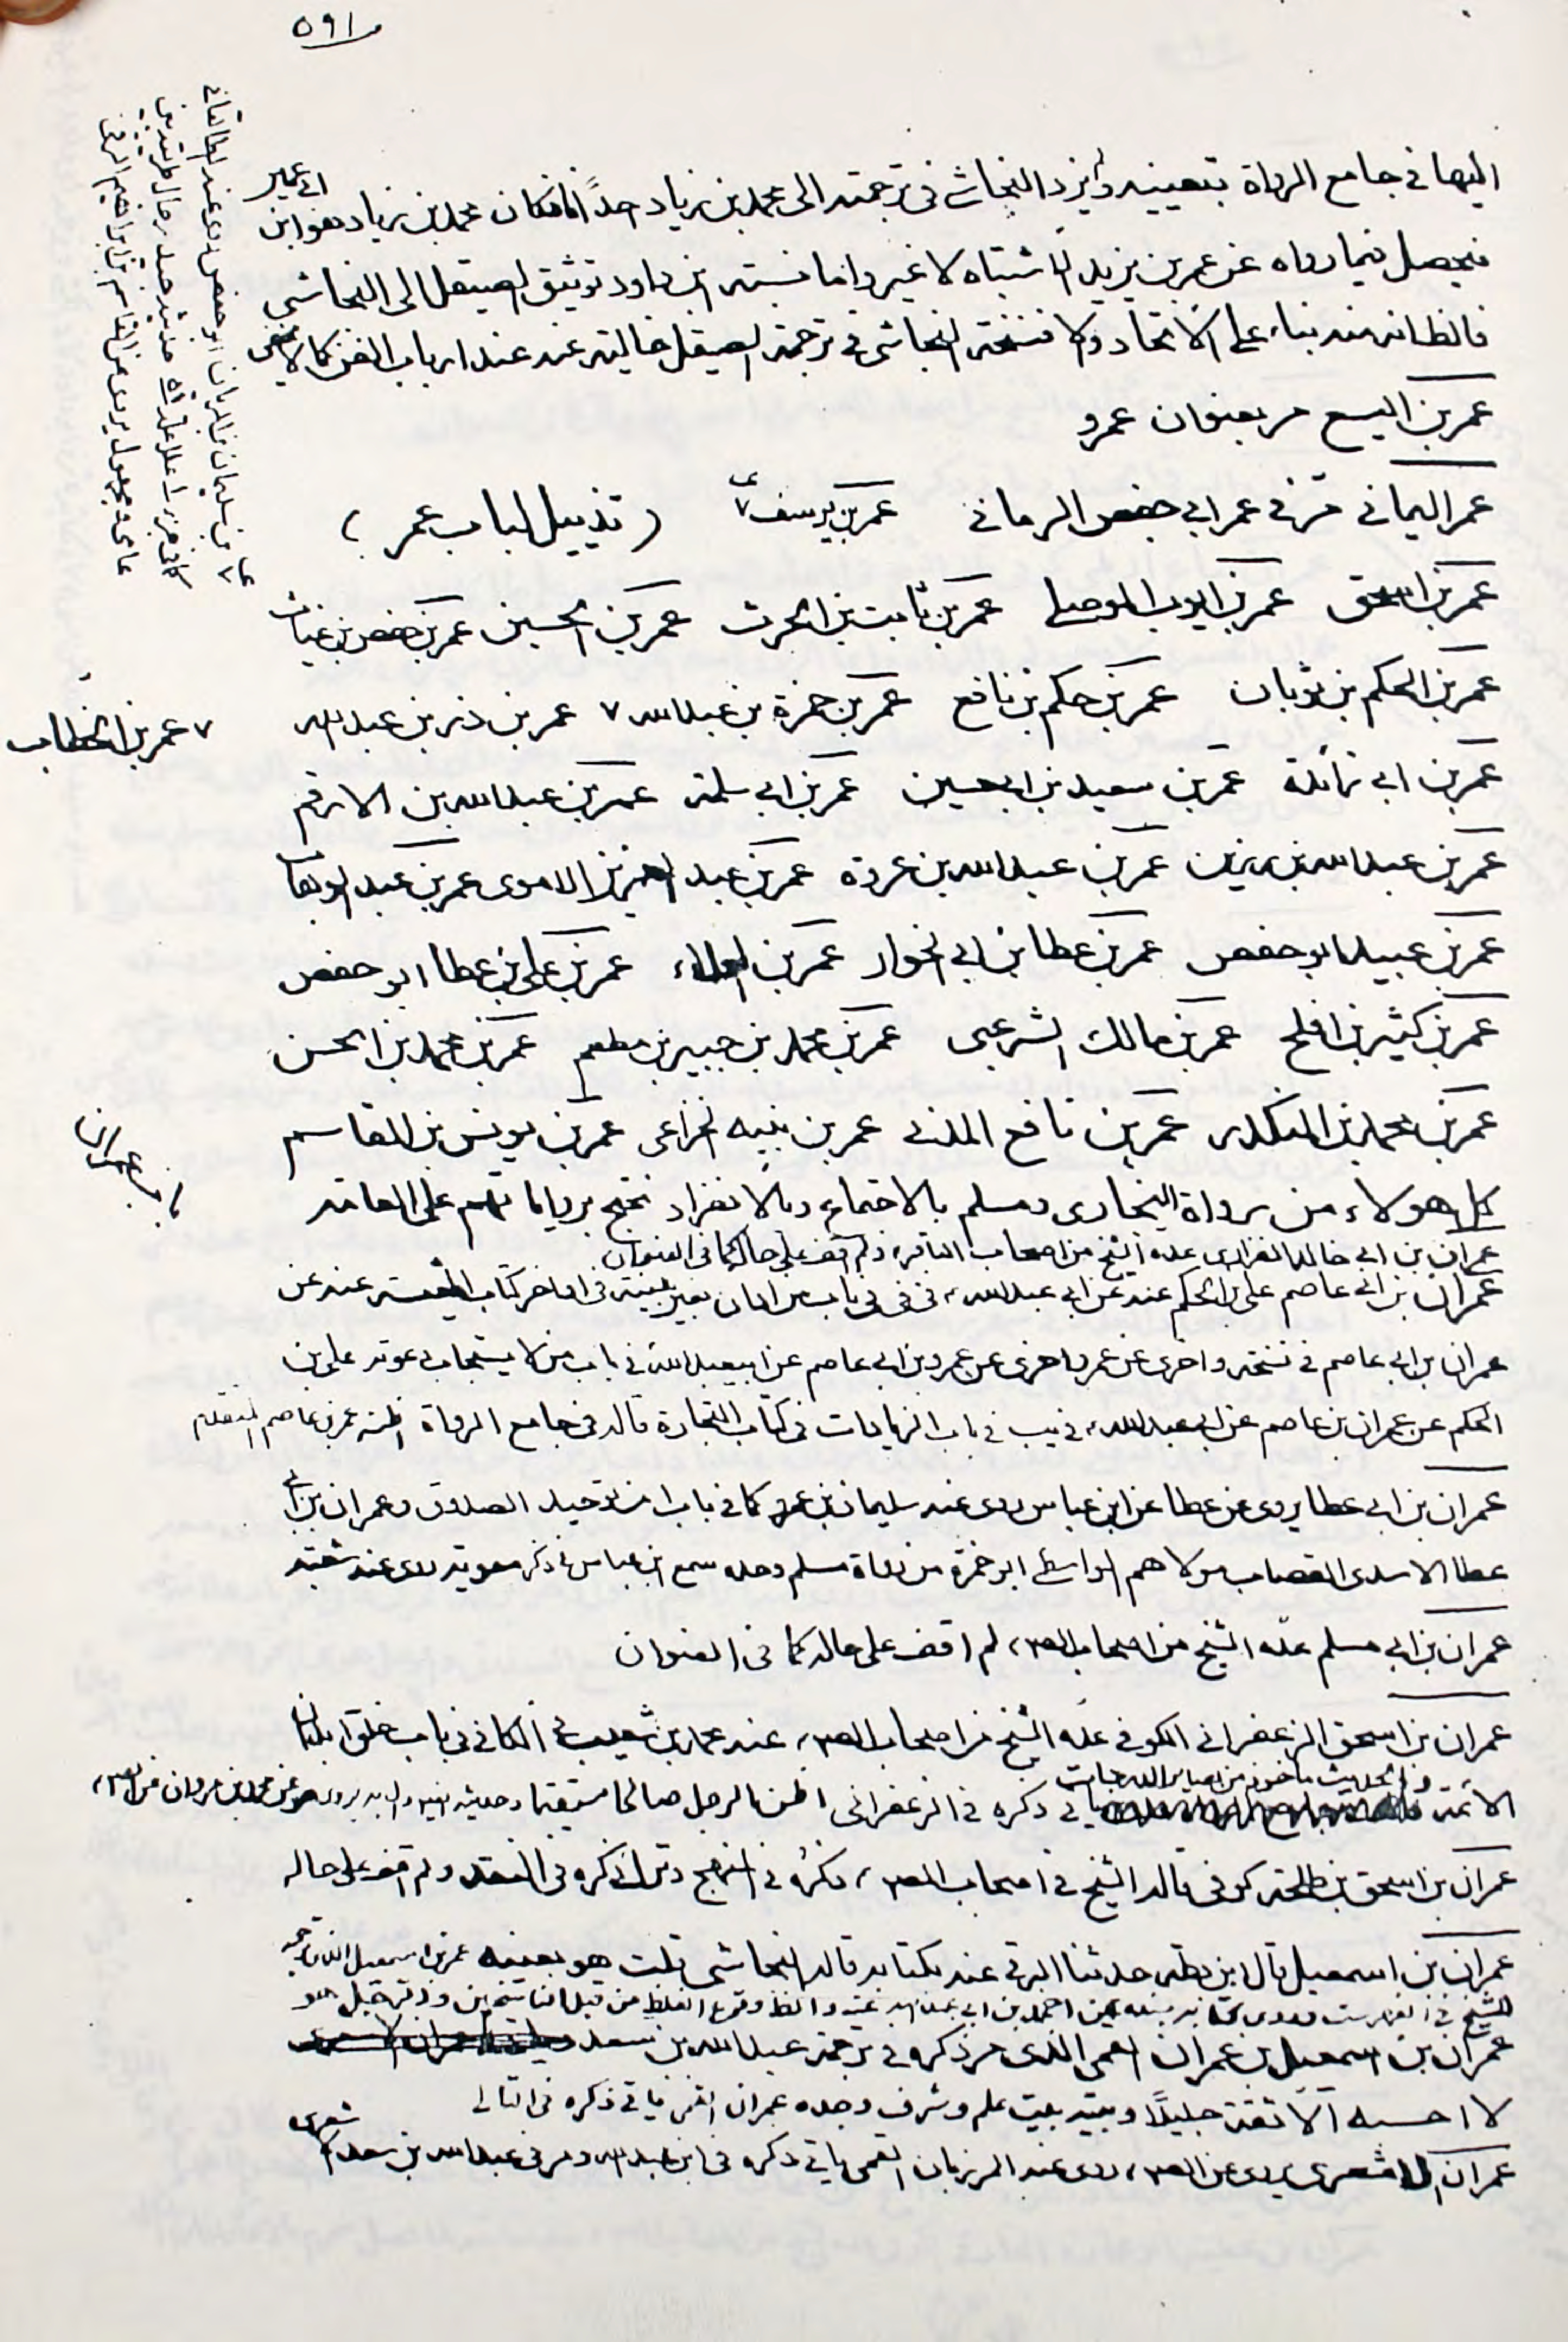 ٥٩١
اليها في جامع الرواة بتعيينه ولم يزد النجاشي في ترجمته الى محمد بن زياد فان كان محمد بن زياد هو ابن ابي عمير
فيحصل فيما رواه عن عمر بن يزيد الاشتباه لا غير واما نسبة ابن داود توثيق الصيقل الى النجاشي
فالظ انه منه بناء على الاتحاد والا فنسخة النجاشي في ترجمة الصيقل خالية عنه عند ارباب الفن كما لا يخفى
عمر بن اليسع مر بعنوان عمرو
عمر اليماني مر في عمر ابي حفص الرماني عمر بن يوسف ٧ ( تذييل لباب عمر )
عمر بن اسحق عمر بن ايوب الموصلي عمر بن ثابت بن الحرث عمر بن الحسين عمر بن حفص بن غياث
عمر بن الحكم بن ثوبان عمر بن حكم بن نافع عمر بن حمزة بن عبدالله ٧ عمر بن ذر بن عبدالله
٧ عمر بن الخطاب
عمر بن ابي زائدة عمر بن سعيد بن ابي حسين عمر بن ابي سلمة عمر بن عبدالله بن الارقم
عمر بن عبدالله بن رزين عمر بن عبدالله بن عروة عمر بن عبد العزيز الاموى عمر بن عبد الوهاب
عمر بن عبيد ابو حفص عمر بن عطا بن ابي الخوار عمر بن العلاء عمر بن علي بن عطا ابو حفص
عمر بن كثير بن افلح عمر بن مالك الشرعبي عمر بن محمد بن جبير بن مطعم عمر بن محمد بن الحسن
عمر بن محمد بن المنكدر عمر بن نافع المدني عمر بن نبيه الخزاعي عمر بن يونس بن القاسم
باب عمران
كل هولاء من رواة البخارى ومسلم بالاجتماع وبالانفراد نحتج برواياتهم على العامة
عمران بن ابي خالد الفزارى عده الشيخ من اصحاب الباقر، ولم اقف على حاله كما في العنوان
عمران بن ابي عاصم علي بن الحكم عنه عن ابي عبدالله، في في في باب من ادان بغير بينة في اواخر كتاب المعيشة عنه عن
عمران بن ابي عاصم في نسخة واخرى عن عمر واخرى عن عمرو بن ابي عاصم عن ابي عبدالله في باب من لا يستجاب دعوته علي بن
الحكم عن عمران بن عاصم عن ابي عبدالله، في يب في باب الزيادات في كتاب التجارة قاله في جامع الرواة اظنه عمر بن عاصم المتقدم
عمران بن ابي عطا يروى عن عطا عن ابن عباس روى عنه سليمان بن عمرو كما في باب من توحيد الصدوق وعمران بن ابي
عطا الاسدى القصاب مولاهم الواسطي ابو حمزة من رواة مسلم وحده سمع ابن عباس في ذكر معوية روى عنه شعبة
عمران بن ابي مسلم عده الشيخ من اصحاب الص، لم اقف على حاله كما في العنوان
عمران بن اسحق الزعفراني الكوفي عده الشيخ من اصحاب الص، عنه محمد بن شعيب في الكافي في باب خلق ابدان
والحديث ماخوذ من بصاير الدرجات
الائمة ياتي ذكره في الزعفراني اظن الرجل صالحا مستقيما
عمران بن اسحق بن طلحة كوفي قاله الشيخ في اصحاب الص، ذكره في المنهج وترك ذكره في النقد ولم اقف على حاله
عمران بن اسمعيل قال ابن بطة حدثنا البرقي عنه بكتابه قاله النجاشي قلت هو بعينه عمر بن اسمعيل الذى ترجمه
الشيخ في الفهرست وروى كتابه بسنده عن احمد بن ابي عبدالله عنه والظ وقوع الغلط من قبل الناسخين
عمران بن اسمعيل بن عمران القمى الذى مر ذكره في ترجمة عبدالله بن سعد
لا احسبه الا ثقة جليلا وبيته بيت علم وشرف وجده عمران القمى ياتي ذكره في التالي
عمران الاشعرى يروى عن الص، روى عنه المرزبان القمى ياتي ذكره في ابن عبدالله ومر في عبدالله بن سعد الاشعرى